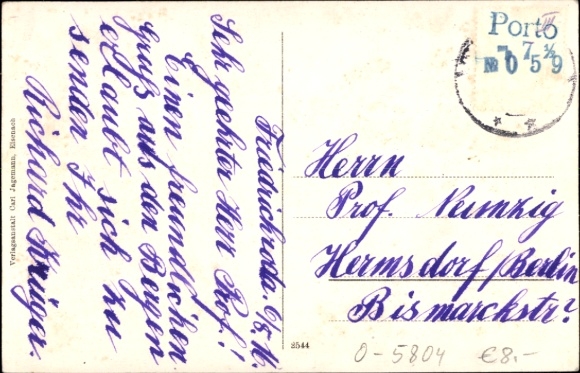 Friedrichroda. 6/8. 16.
Sehr geehrter Herr Prof.!
Einen freundlichen
Gruß aus den Bergen
erlaubt sich zu
senden Ihr
Richard Krüger.
Verlagsanstalt Carl Jagemann, Eisenach
Porto
III
7 7 ½
№ 0 5 9
Herrn
Prof. Neumzig
Hermsdorf/Berlin
Bismarckstr?
8544
0-5804 €8,-